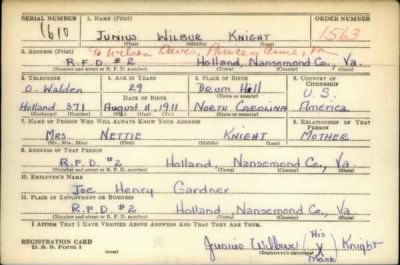 SERIAL NUMBER 1. NAME (Print) ORDER NUMBER
1610 JUNIUS WILBUR KNIGHT 1563
(First) (Middle) (Last)
2. ADDRESS (Print)
R.F.D. #2 Holland, Nansemond Co., Va.
(Number and street or R. F. D. number) (Town) (County) (State)
3. TELEPHONE 4. AGE IN YEARS 5. PLACE OF BIRTH 6. COUNTRY OF CITIZENSHIP
O. Walden 29 Drum Hill U.S.
DATE OF BIRTH (Town or county)
Holland 371 August 11, 1911 NORTH CAROLINA America
(Exchange) (Number) (Mo.) (Day) (Yr.) (State or country)
7. NAME OF PERSON WHO WILL ALWAYS KNOW YOUR ADDRESS 8. RELATIONSHIP OF THAT PERSON
MRS. NETTIE KNIGHT MOTHER
(Mr., Mrs., Miss) (First) (Middle) (Last)
9. ADDRESS OF THAT PERSON
R.F.D. #2 Holland, Nansemond Co., Va
(Number and street or R. F. D. number) (Town) (County) (State)
10. EMPLOYER'S NAME
Joe Henry Gardner
11. PLACE OF EMPLOYMENT OR BUSINESS
R.F.D. #2 Holland, Nansemond Co., Va
(Number and street or R. F. D. number) (Town) (County) (State)
I AFFIRM THAT I HAVE VERIFIED ABOVE ANSWERS AND THAT THEY ARE TRUE.
REGISTRATION CARD
D. S. S. Form 1
Junius Wilbur (His X Mark) Knight